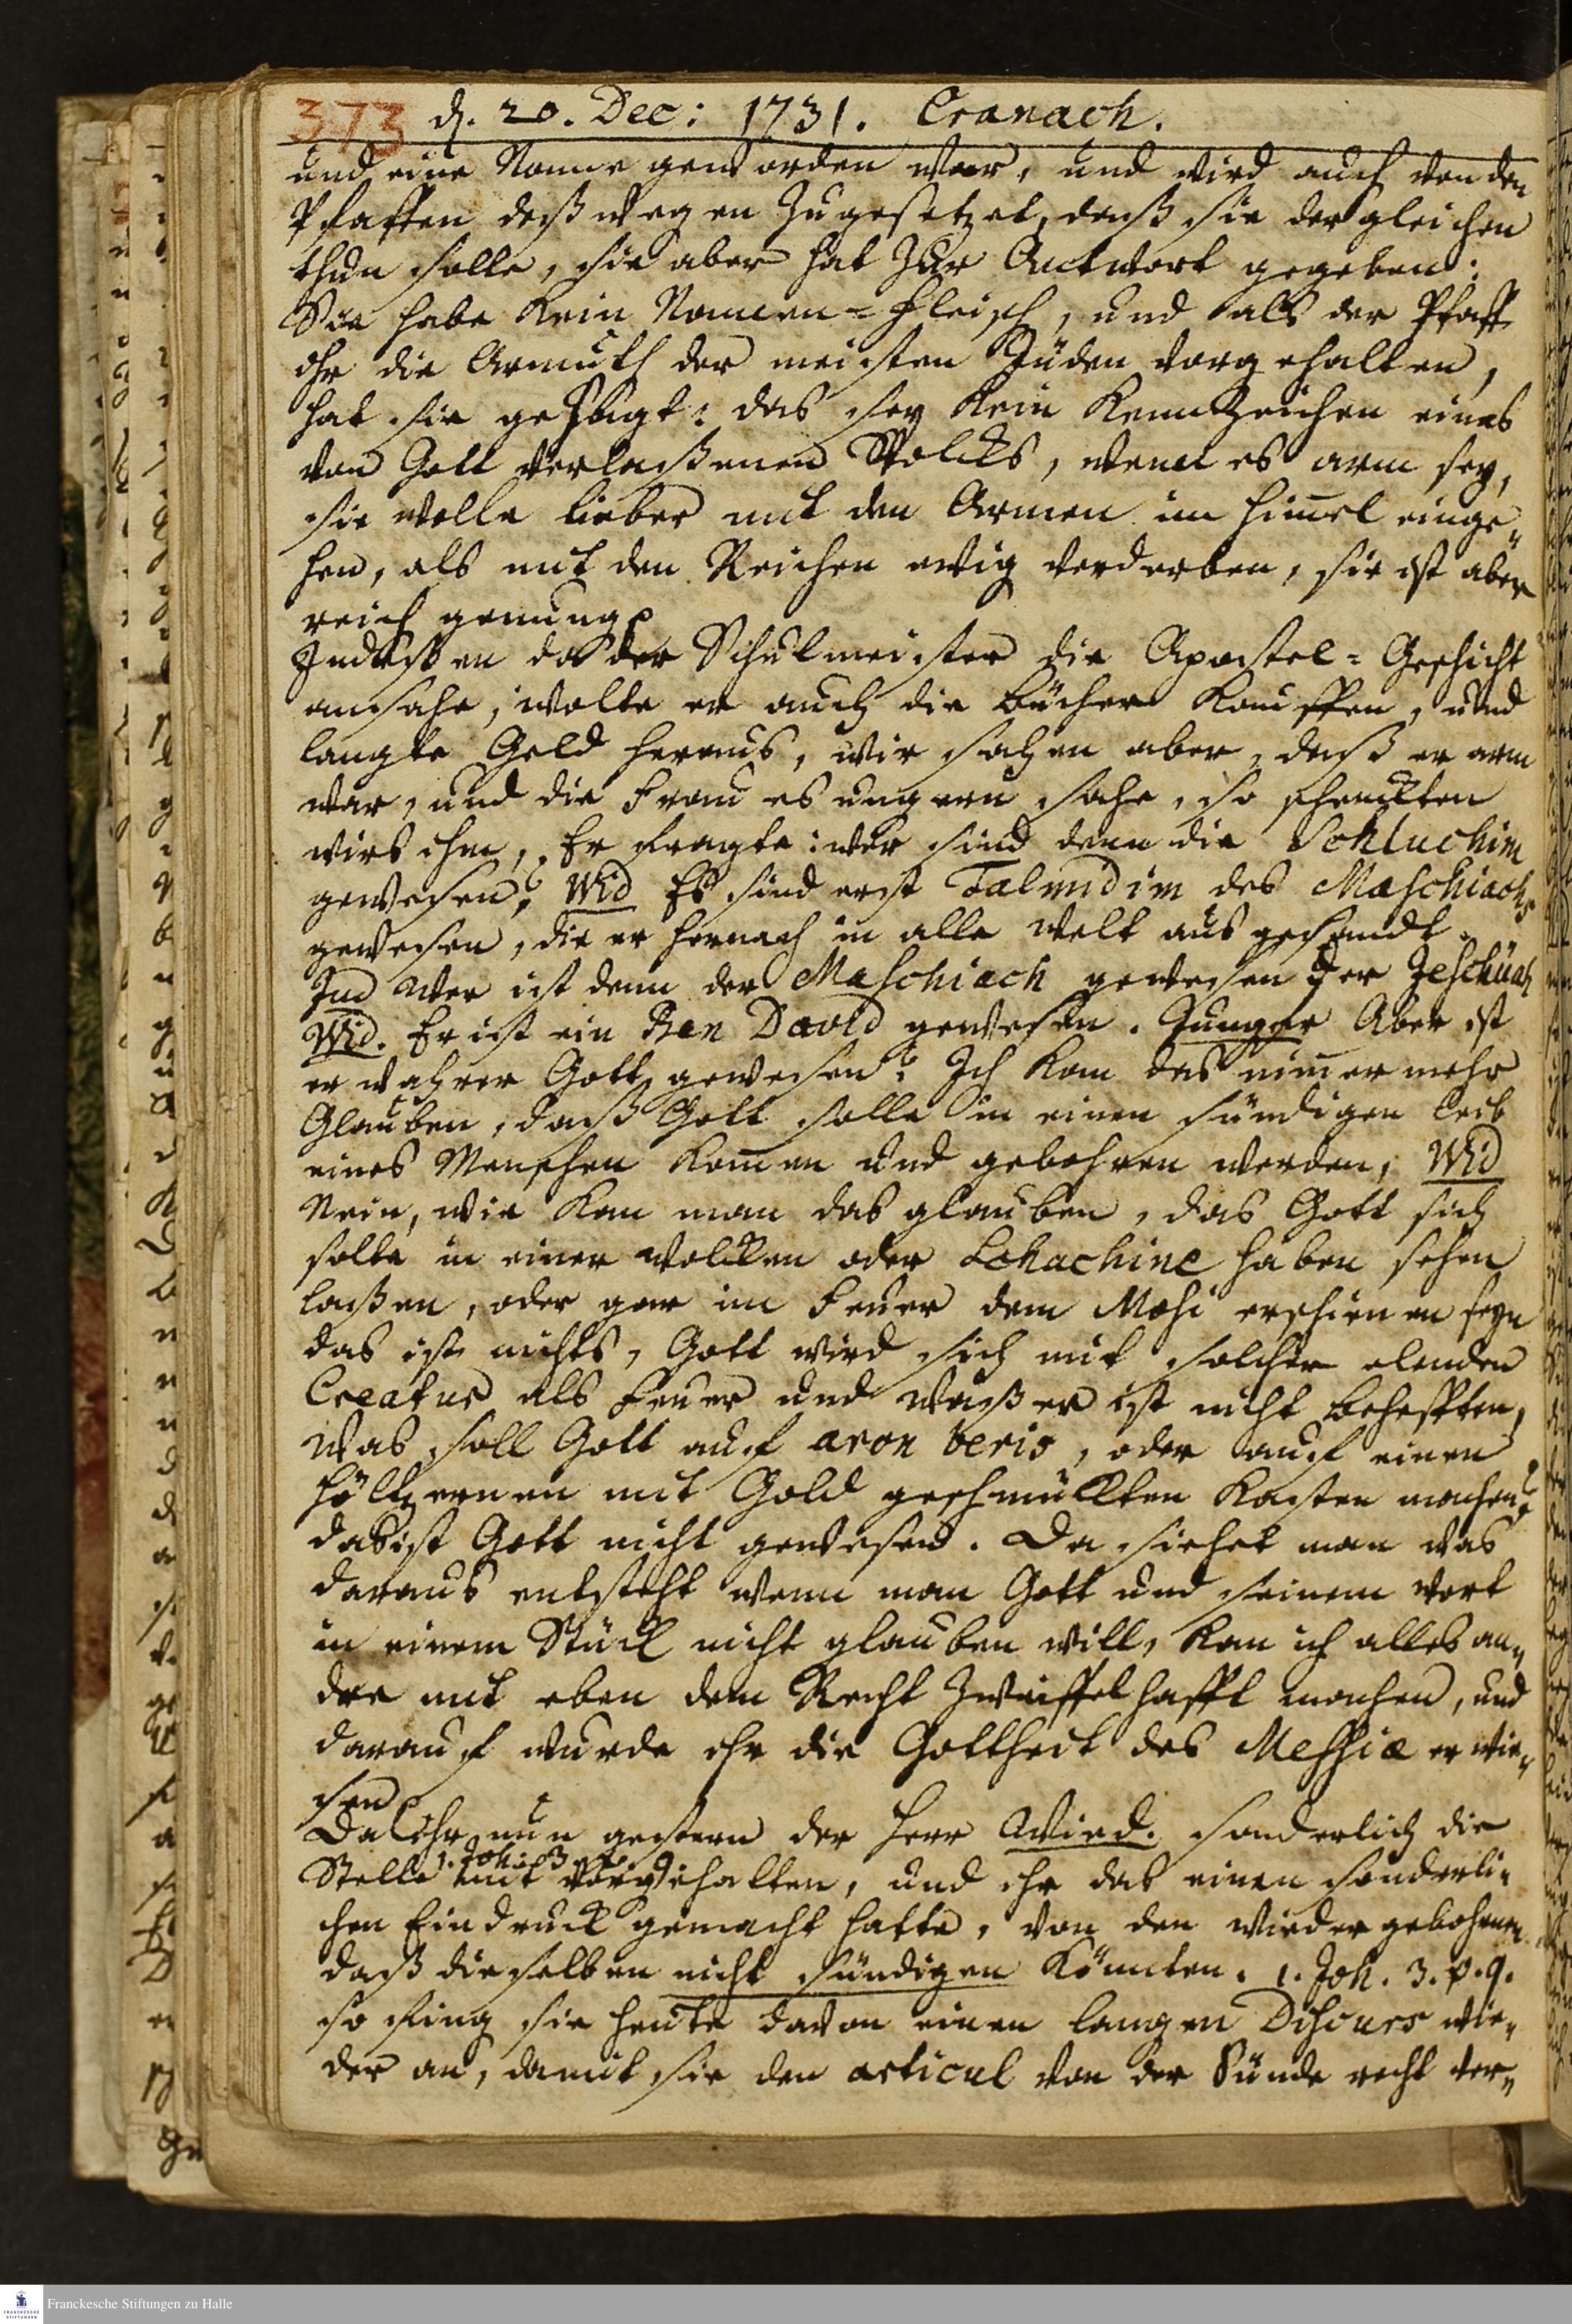 373 d. 20. Dec: 1731. Cranach.
und eine Nonne geworden war, und wird auch von den
Pfaffen deßwegen zugesetzet, daß sie dergleichen
thun solle, sie aber hat zur Antwort gegeben:
Sie habe kein Nonnen-Fleisch, und als der Pfaff
ihr die Armuth der meisten Jüden vorgehalten,
hat sie gesagt: das sey kein Kennzeichen eines
von Gott verlaßenen Volcks, wenn es arm sey,
sie wolle lieber mit den Armen im Himel einge„
hen, als mit den Reichen ewig verderben, sie ist aber
reich genung.
Indeßen da der Schulmeister die Apostel-Geschicht
ansahe, wolte er auch die Bücher kauffen, und
langte Geld heraus, wir sahen aber, daß er arm
war, und die Frau es ungern sahe, so schenckten
wirs ihm, Er fragte: wer sind denn die Schluchim
gewesen? Wid Es sind erst Talmidim des Maschiachs
gewesen, die er hernach in alle Welt ausgesandt.
Jud Wer ist denn der Maschiach gewesen der Jeschuah
Wid. Er ist ein Ben David gewesen. Junger Aber ist
er wahrer Gott gewesen? Ich kan das nimermehr
Glauben, daß Gott solle in einen sündigen Leib
eines Menschen komen und gebohren werden, Wid
Nein, wie kan man das glauben, das Gott sich
solte in einer Wolcken oder Schachine haben sehen
laßen, oder gar im Feuer dem Mosi erschienen seyn
das ist nichts, Gott wird sich mit solcher elenden
Creatur als Feuer und Waßer ist nicht behefften,
Was soll Gott auf aron beris, oder auf einen
höltzernen mit Gold geschmückten Kasten machen?
das ist Gott nicht gewesen. Da siehet man was
daraus entsteht wenn man Gott und seinem Wort
in einem Stück nicht glauben will, kan ich alles an„
dre mit eben dem Recht zweiffelhafft machen, und
darauf wurde ihr die Gottheit des Messiæ erwie„
sen
Da ihr nun gestern der Herr Wied. sonderlich die
Stelle 1. Joh: 3 mit vorgehalten, und ihr das einen sonderli„
chen Eindruck gemacht hatte, von den Wiedergebohrnen
daß dieselben nicht sündigen könnten. 1. Joh. 3. v. 9.
so fing sie heute davon einen langen Discurs wie„
der an, damit sie den articul von der Sünde recht ver„
Franckesche Stiftungen zu Halle